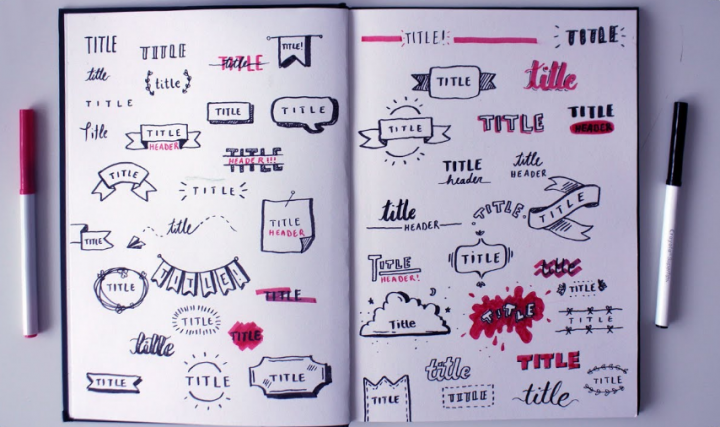 TITLE
TITLE
TITLE
title
TITLE!
title
title
TITLE
title
TITLE
TITLE
TITLE
HEADER
TITLE
HEADER!!!
TITLE
TITLE
title
TITLE
HEADER
TITLE
TITLE
TITLE!
TITLE
TITLE
TITLE
title
TITLE
TITLE
TITLE
TITLE!
TITLE
TITLE
title
TITLE
TITLE
TITLE
HEADER
TITLE
header
title
HEADER
title
HEADER
TITLE
TITLE
TITLE
HEADER!
TITLE
title
TITLE
Title
TITLE
TITLE
title
TITLE
TITLE
TITLE
TITLE
title